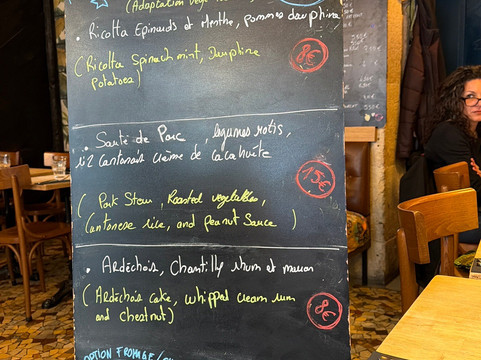 (Adaptation végé
• Ricotta Epinards et Menthe, pommes dauphine
(Ricotta Spinach mint, Dauphine
Potatoes)
8€
• Sauté de Porc, légumes rôtis,
riz cantonais crème de cacahuète
15€
(Pork Stew, Roasted vegetables,
Cantonese rice, and peanut Sauce)
• Ardéchois, Chantilly rhum et marron
(Ardéchois cake, whipped cream rum
and chestnut)
8€
OPTION FROMAGE/